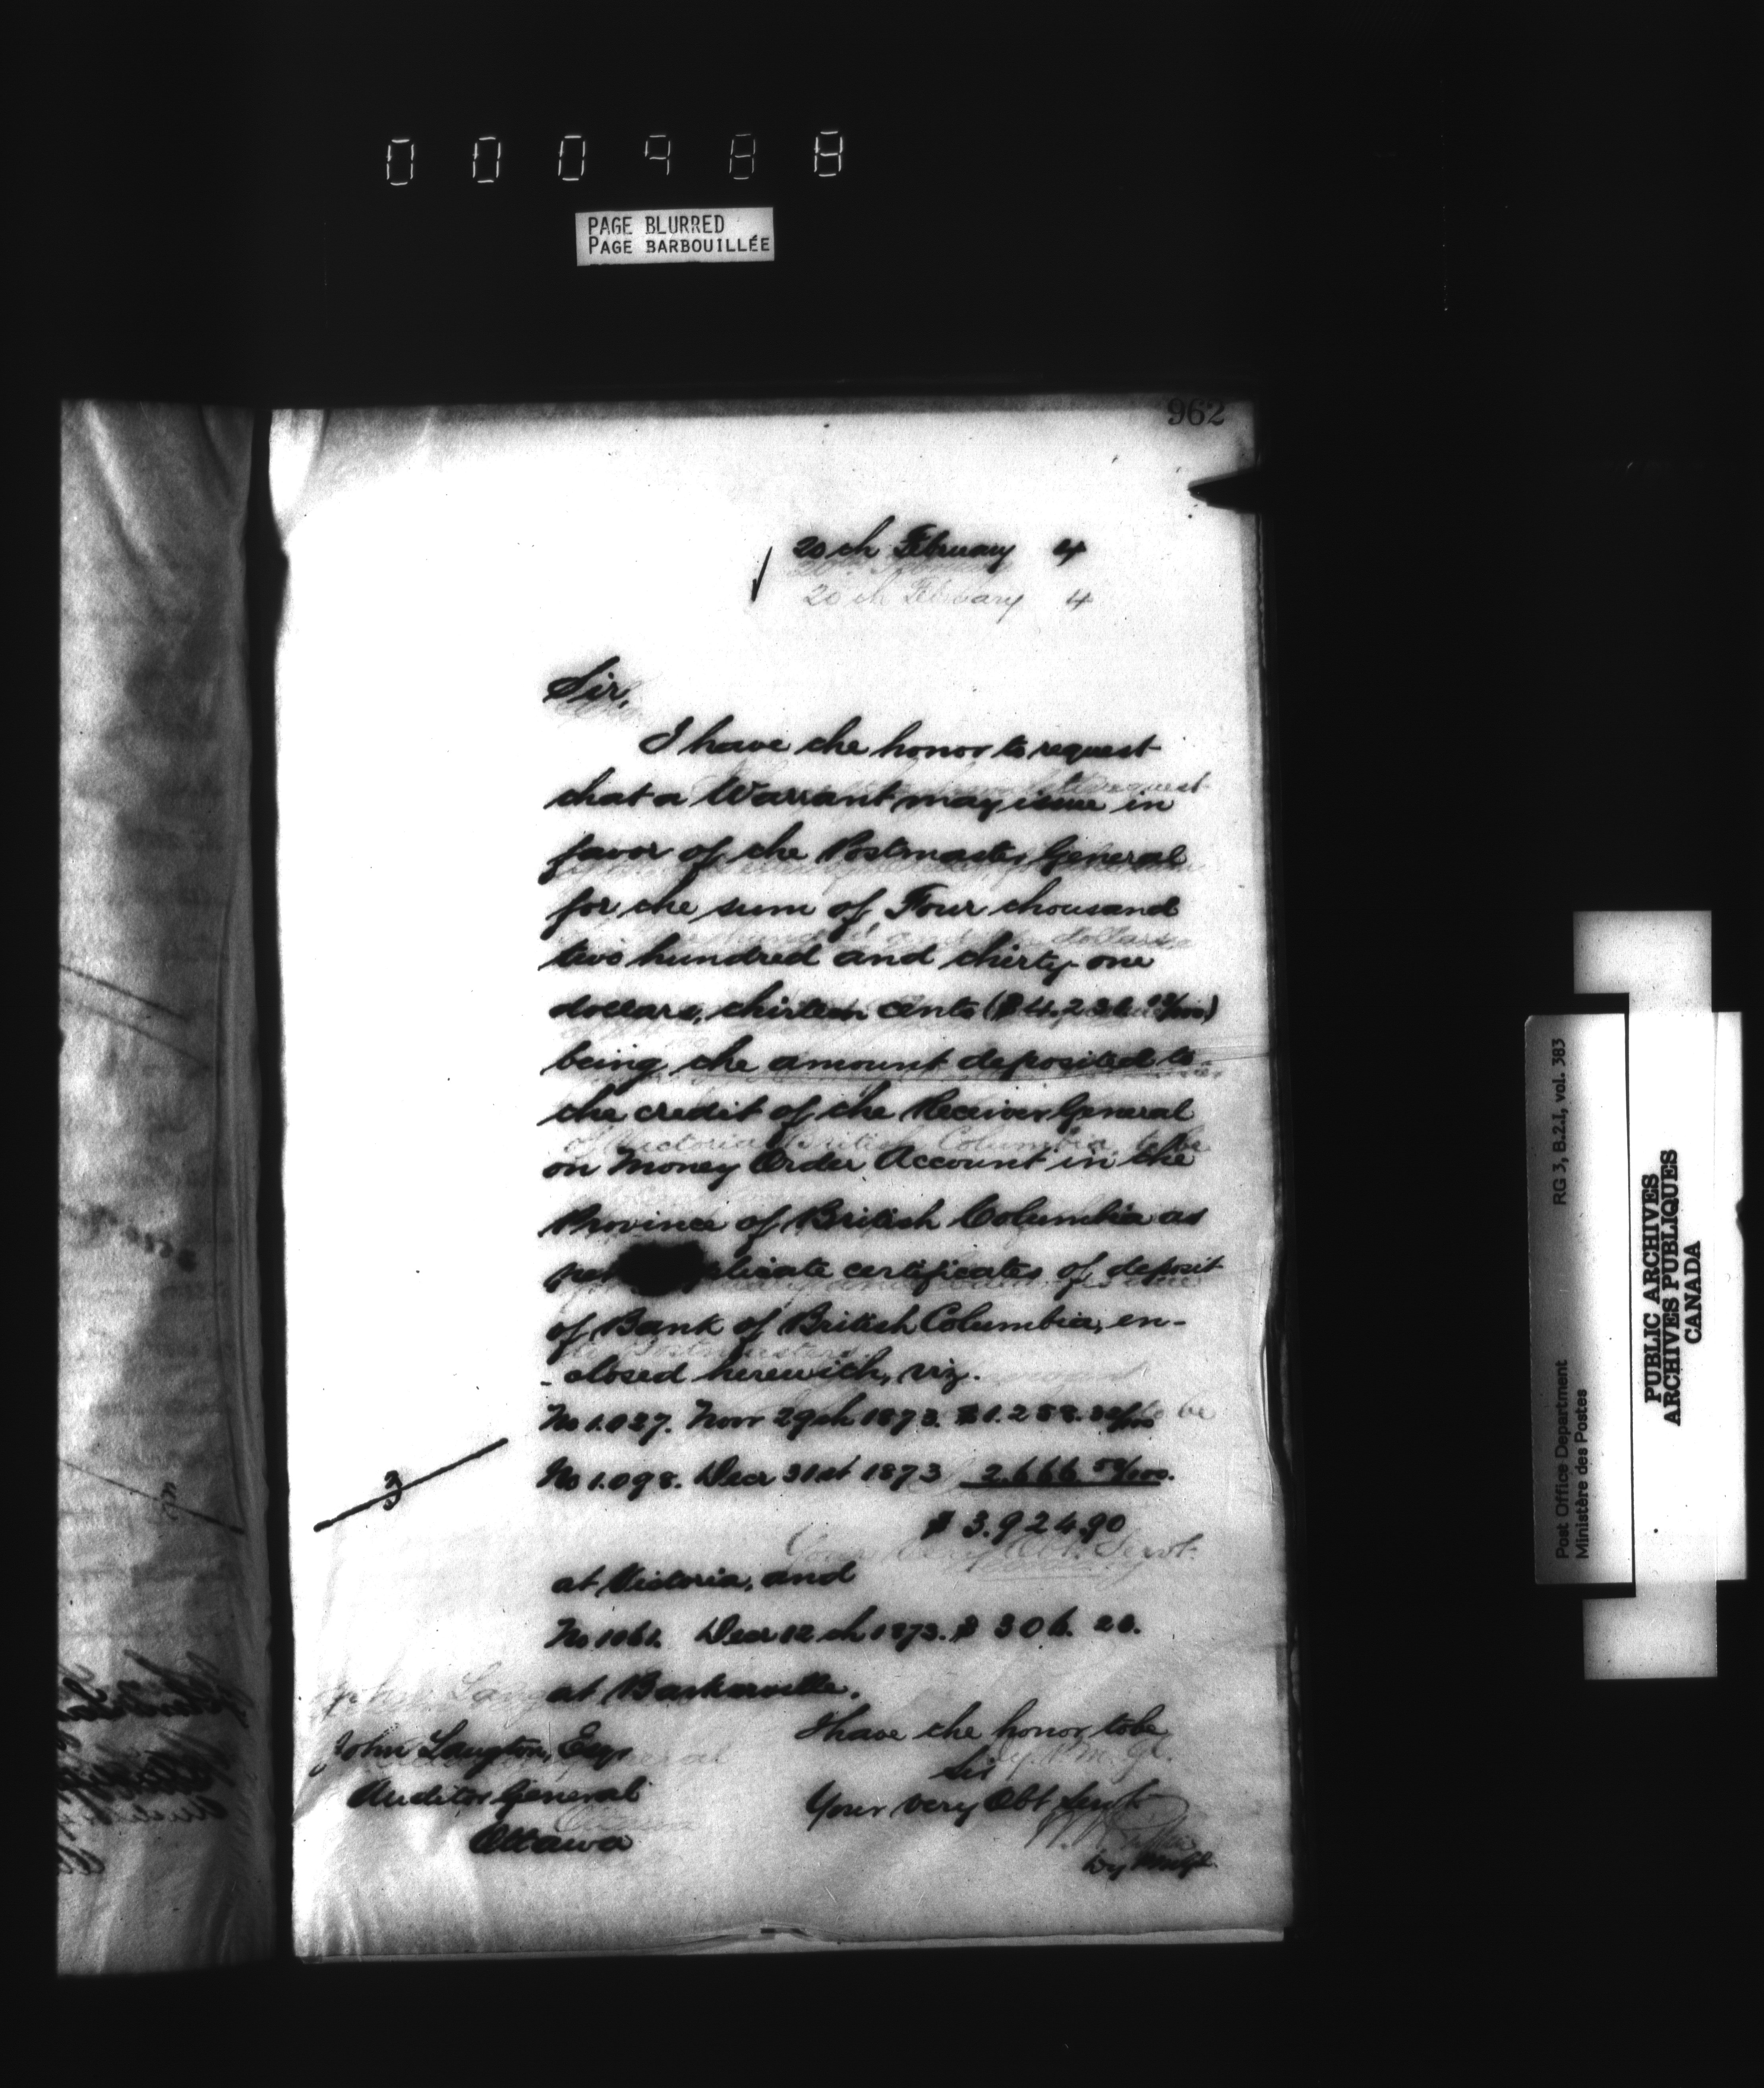 000988
PAGE BLURRED
PAGE BARBOUILLÉE
962
20th February 4
20th February 4
Sir,
I have the honor to request
that a Warrant may issue in
favor of the Postmaster General
for the sum of Four thousand
two hundred and thirty-one
dollars, thirteen cents ($4.231
being the amount deposited to
the credit of the Receiver General
on Money Order Account in the
Province of British Columbia as
per certificates of deposit
of Bank of British Columbia, en-
-closed herewith, viz.
No 1.027. Novr 29th 1873. $1.258.
No 1.098. Decr 31st 1873 2.666
$3.924.90
at Victoria, and
No 1061. Decr 12th 1873. $306.
at Barkerville.
I have the honor to be
Sir
Your very Obt Servt
Dy PMGl
John Langton, Esqr
Auditor General
Ottawa
3
Post Office Department RG 3, B.2.1, vol. 383
Ministère des Postes
PUBLIC ARCHIVES
ARCHIVES PUBLIQUES
CANADA